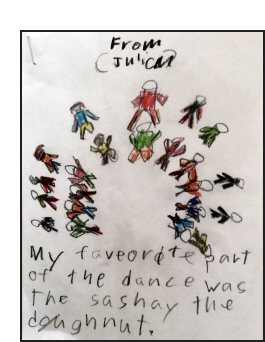 From
(Julian)
My faveorote part
of the dance was
the sashay the
doughnut.